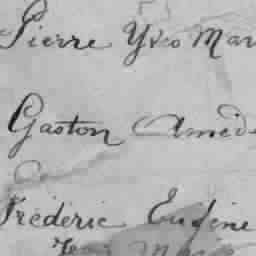 Pierre Yves Mar
Gaston Amed
Frédéric Eugène